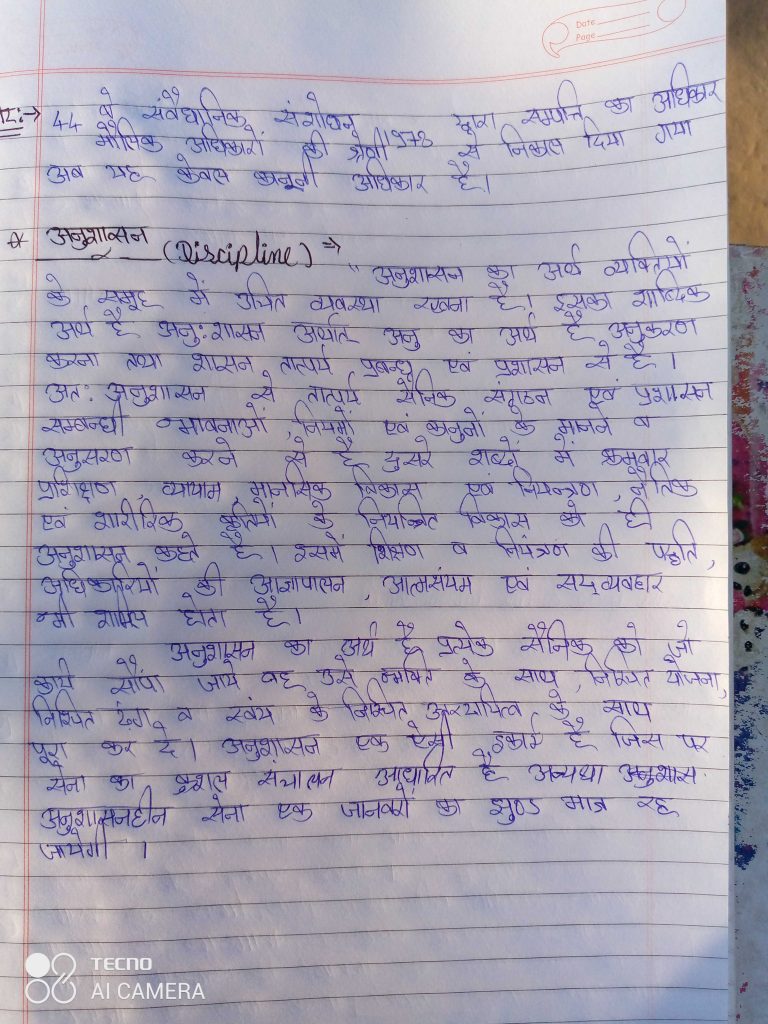 Date
Page
44 वे संवैधानिक संशोधन 1978 द्वारा सम्पत्ति का अधिकार
मौलिक अधिकारों की श्रेणी से निकाल दिया गया
अब यह केवल कानूनी अधिकार है।
* अनुशासन (Discipline) ⇒
" अनुशासन का अर्थ व्यक्तियों
के समूह में उचित व्यवस्था रखना है। इसका शाब्दिक
अर्थ है अनु:शासन अर्थात् अनु का अर्थ है अनुकरण
करना तथा शासन तात्पर्य प्रबन्ध एवं प्रशासन से है।
अत: अनुशासन से तात्पर्य सैनिक संगठन एवं प्रशासन
सम्बन्धी भावनाओं, नियमों एवं कानुनों के मानने व
अनुसरण करने से है दुसरे शब्दों में क्रमवार
प्रशिक्षण, व्यायाम, मानसिक विकास एवं नियन्त्रण, नैतिक
एवं शारीरिक के नियन्त्रित विकास को ही
अनुशासन कहते है। इसमें शिक्षण व नियंत्रण की पद्धति,
अधिकारियों की आज्ञापालन, आत्मसंयम एवं सद्व्यवहार
भी शामिल होता है।
अनुशासन का अर्थ है प्रत्येक सैनिक को जो
कार्य सौंपा जाये वह उसे के साथ, निश्चित योजना,
निश्चित ढंग व स्वंय के निश्चित के साथ
पूरा कर दे। अनुशासन एक ऐसी इकाई है जिस पर
सेना का कुशल संचालन आधारित है अन्यथा अनुशास
अनुशासनहीन सेना एक जानवरों का झुण्ड मात्र रह
जायेगी ।
TECNO
AI CAMERA